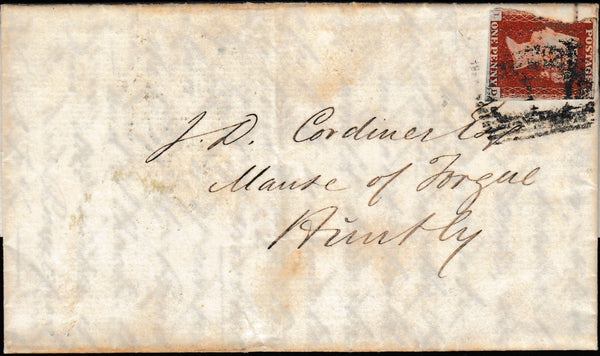 POSTAGE
ONE PENNY
J. D. Cordiner Esq
Manse of Forgue
Huntly